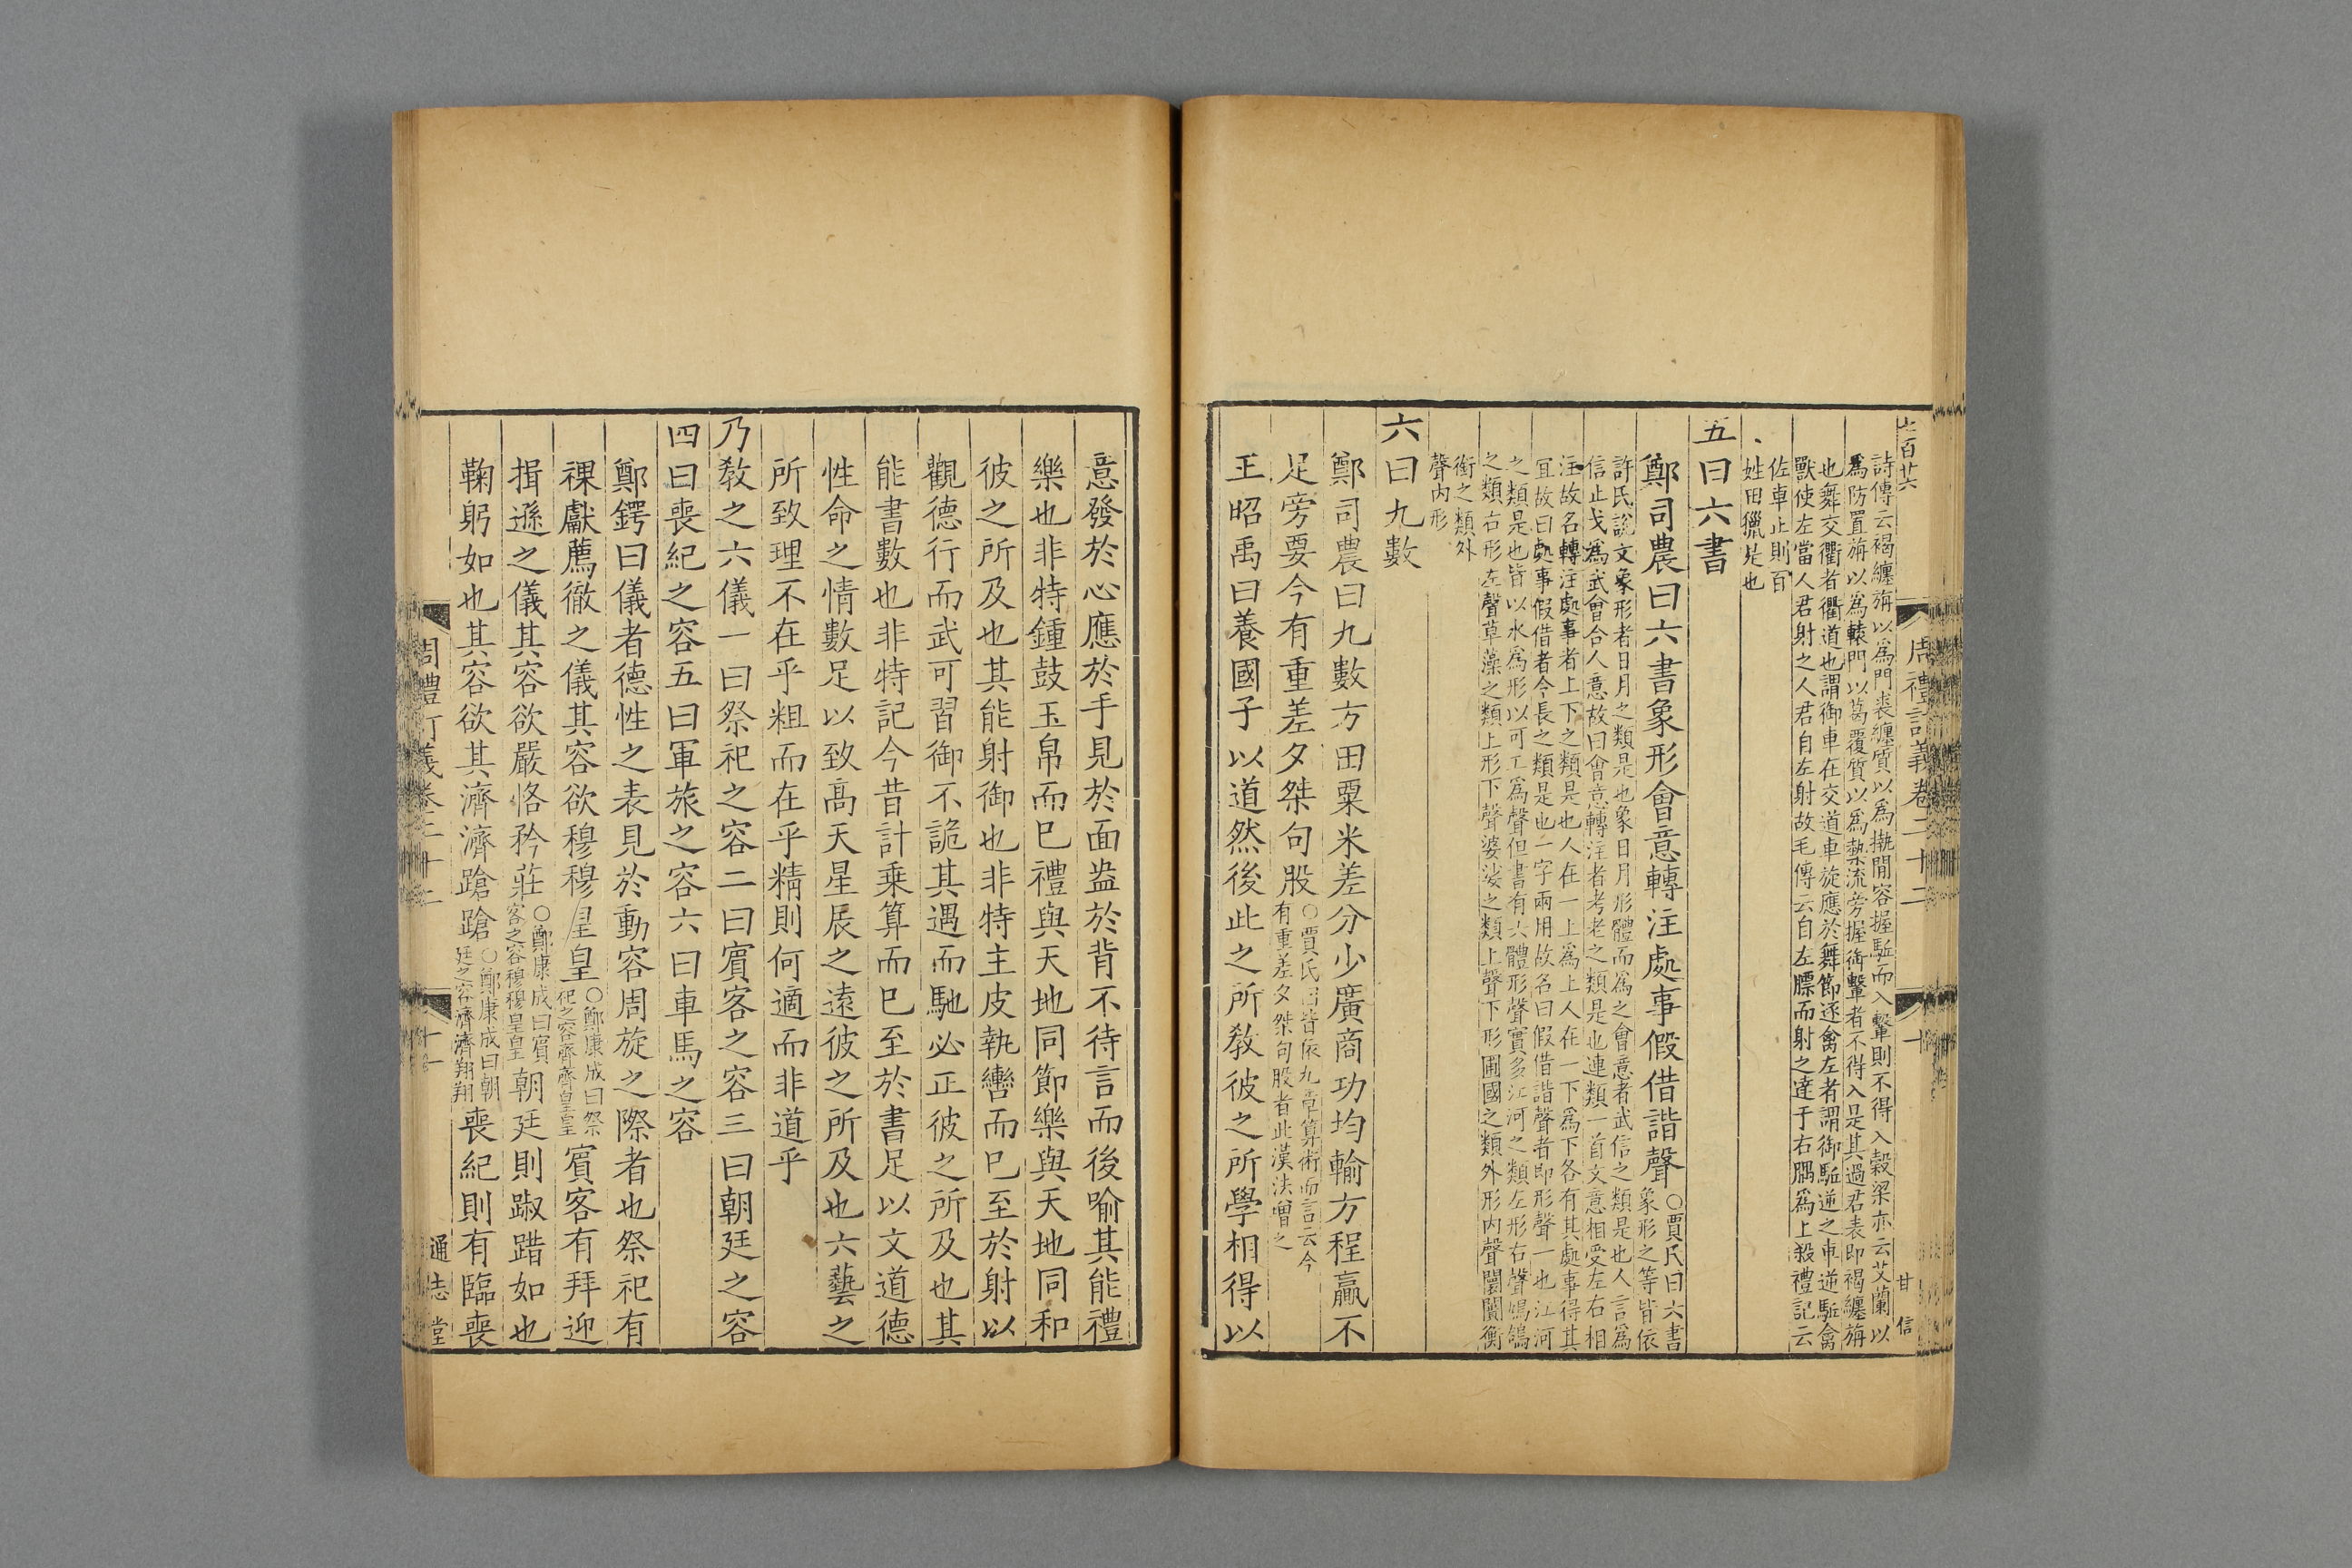 詩傳云褐纏旃以爲門裘纏質以爲㮰閒容握驅而入轚則不得入穀梁亦云艾蘭以
爲防置旃以爲轅門以葛覆質以爲槷流旁握御轚者不得入是其過君表即褐纏旃
也舞交衢者衢道也謂御車在交道車旋應於舞節逐禽左者謂御驅逆之車逆驅禽
獸使左當人君射之人君自左射故毛傳云自左膘而射之達于右腢爲上殺禮記云
佐車止則百
姓田獵是也
五曰六書
鄭司農曰六書象形會意轉注處事假借諧聲
○賈氏曰六書
象形之等皆依
許氏說文象形者日月之類是也象日月形體而爲之會意者武信之類是也人言爲
信止戈爲武會合人意故曰會意轉注者考老之類是也連類一首文意相受左右相
注故名轉注處事者上下之類是也人在一上爲上人在一下爲下各有其處事得其
冝故曰處事假借者令長之類是也一字兩用故名曰假借諧聲者即形聲一也江河
之類是也皆以水爲形以可工爲聲但書有六體形聲實多江河之類左形右聲鳩鴿
之類右形左聲草藻之類上形下聲婆娑之類上聲下形圃國之類外形内聲闤闠衡
銜之類外
聲内形
六曰九數
鄭司農曰九數方田粟米差分少廣商功均輸方程贏不
足旁要今有重差夕桀句股
○賈氏曰皆依九章算術而言云今
有重差夕桀句股者此漢法增之
王昭禹曰養國子以道然後此之所敎彼之所學相得以
周禮訂義卷二十二
十
甘
信
意發於心應於手見於面盎於背不待言而後喻其能禮
樂也非特鍾鼓玉帛而巳禮與天地同節樂與天地同和
彼之所及也其能射御也非特主皮執轡而巳至於射以
觀德行而武可習御不詭其遇而馳必正彼之所及也其
能書數也非特記今昔計乗算而巳至於書足以文道德
性命之情數足以致高天星辰之逺彼之所及也六藝之
所致理不在乎粗而在乎精則何適而非道乎
乃敎之六儀一曰祭祀之容二曰賔客之容三曰朝廷之容
四曰喪紀之容五曰軍旅之容六曰車馬之容
鄭鍔曰儀者德性之表見於動容周旋之際者也祭祀有
祼獻薦徹之儀其容欲穆穆皇皇
○鄭康成曰祭
祀之容齊齊皇皇
賔客有拜迎
揖遜之儀其容欲嚴恪矜莊
○鄭康成曰賔
客之容穆穆皇皇
朝廷則踧踖如也
鞠躬如也其容欲其濟濟蹌蹌
○鄭康成曰朝
廷之容濟濟翔翔
喪紀則有臨喪
周禮訂義卷二十二
十一
通志堂